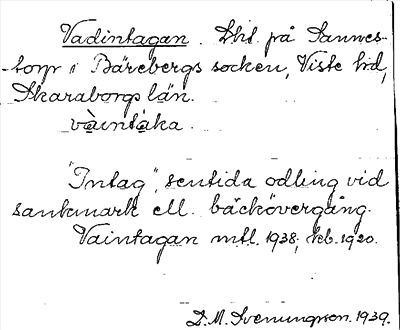 Vadintagan. Stil. på Sannes-
-torp i Bärebergs socken, Viste hd,
Skaraborgs län.
vàintáka.
"Intag", sentida odling vid
sankmark ell. bäckövergång.
Vaintagan mtl. 1938, feb. 1920.
D. M. Svenungson. 1939.